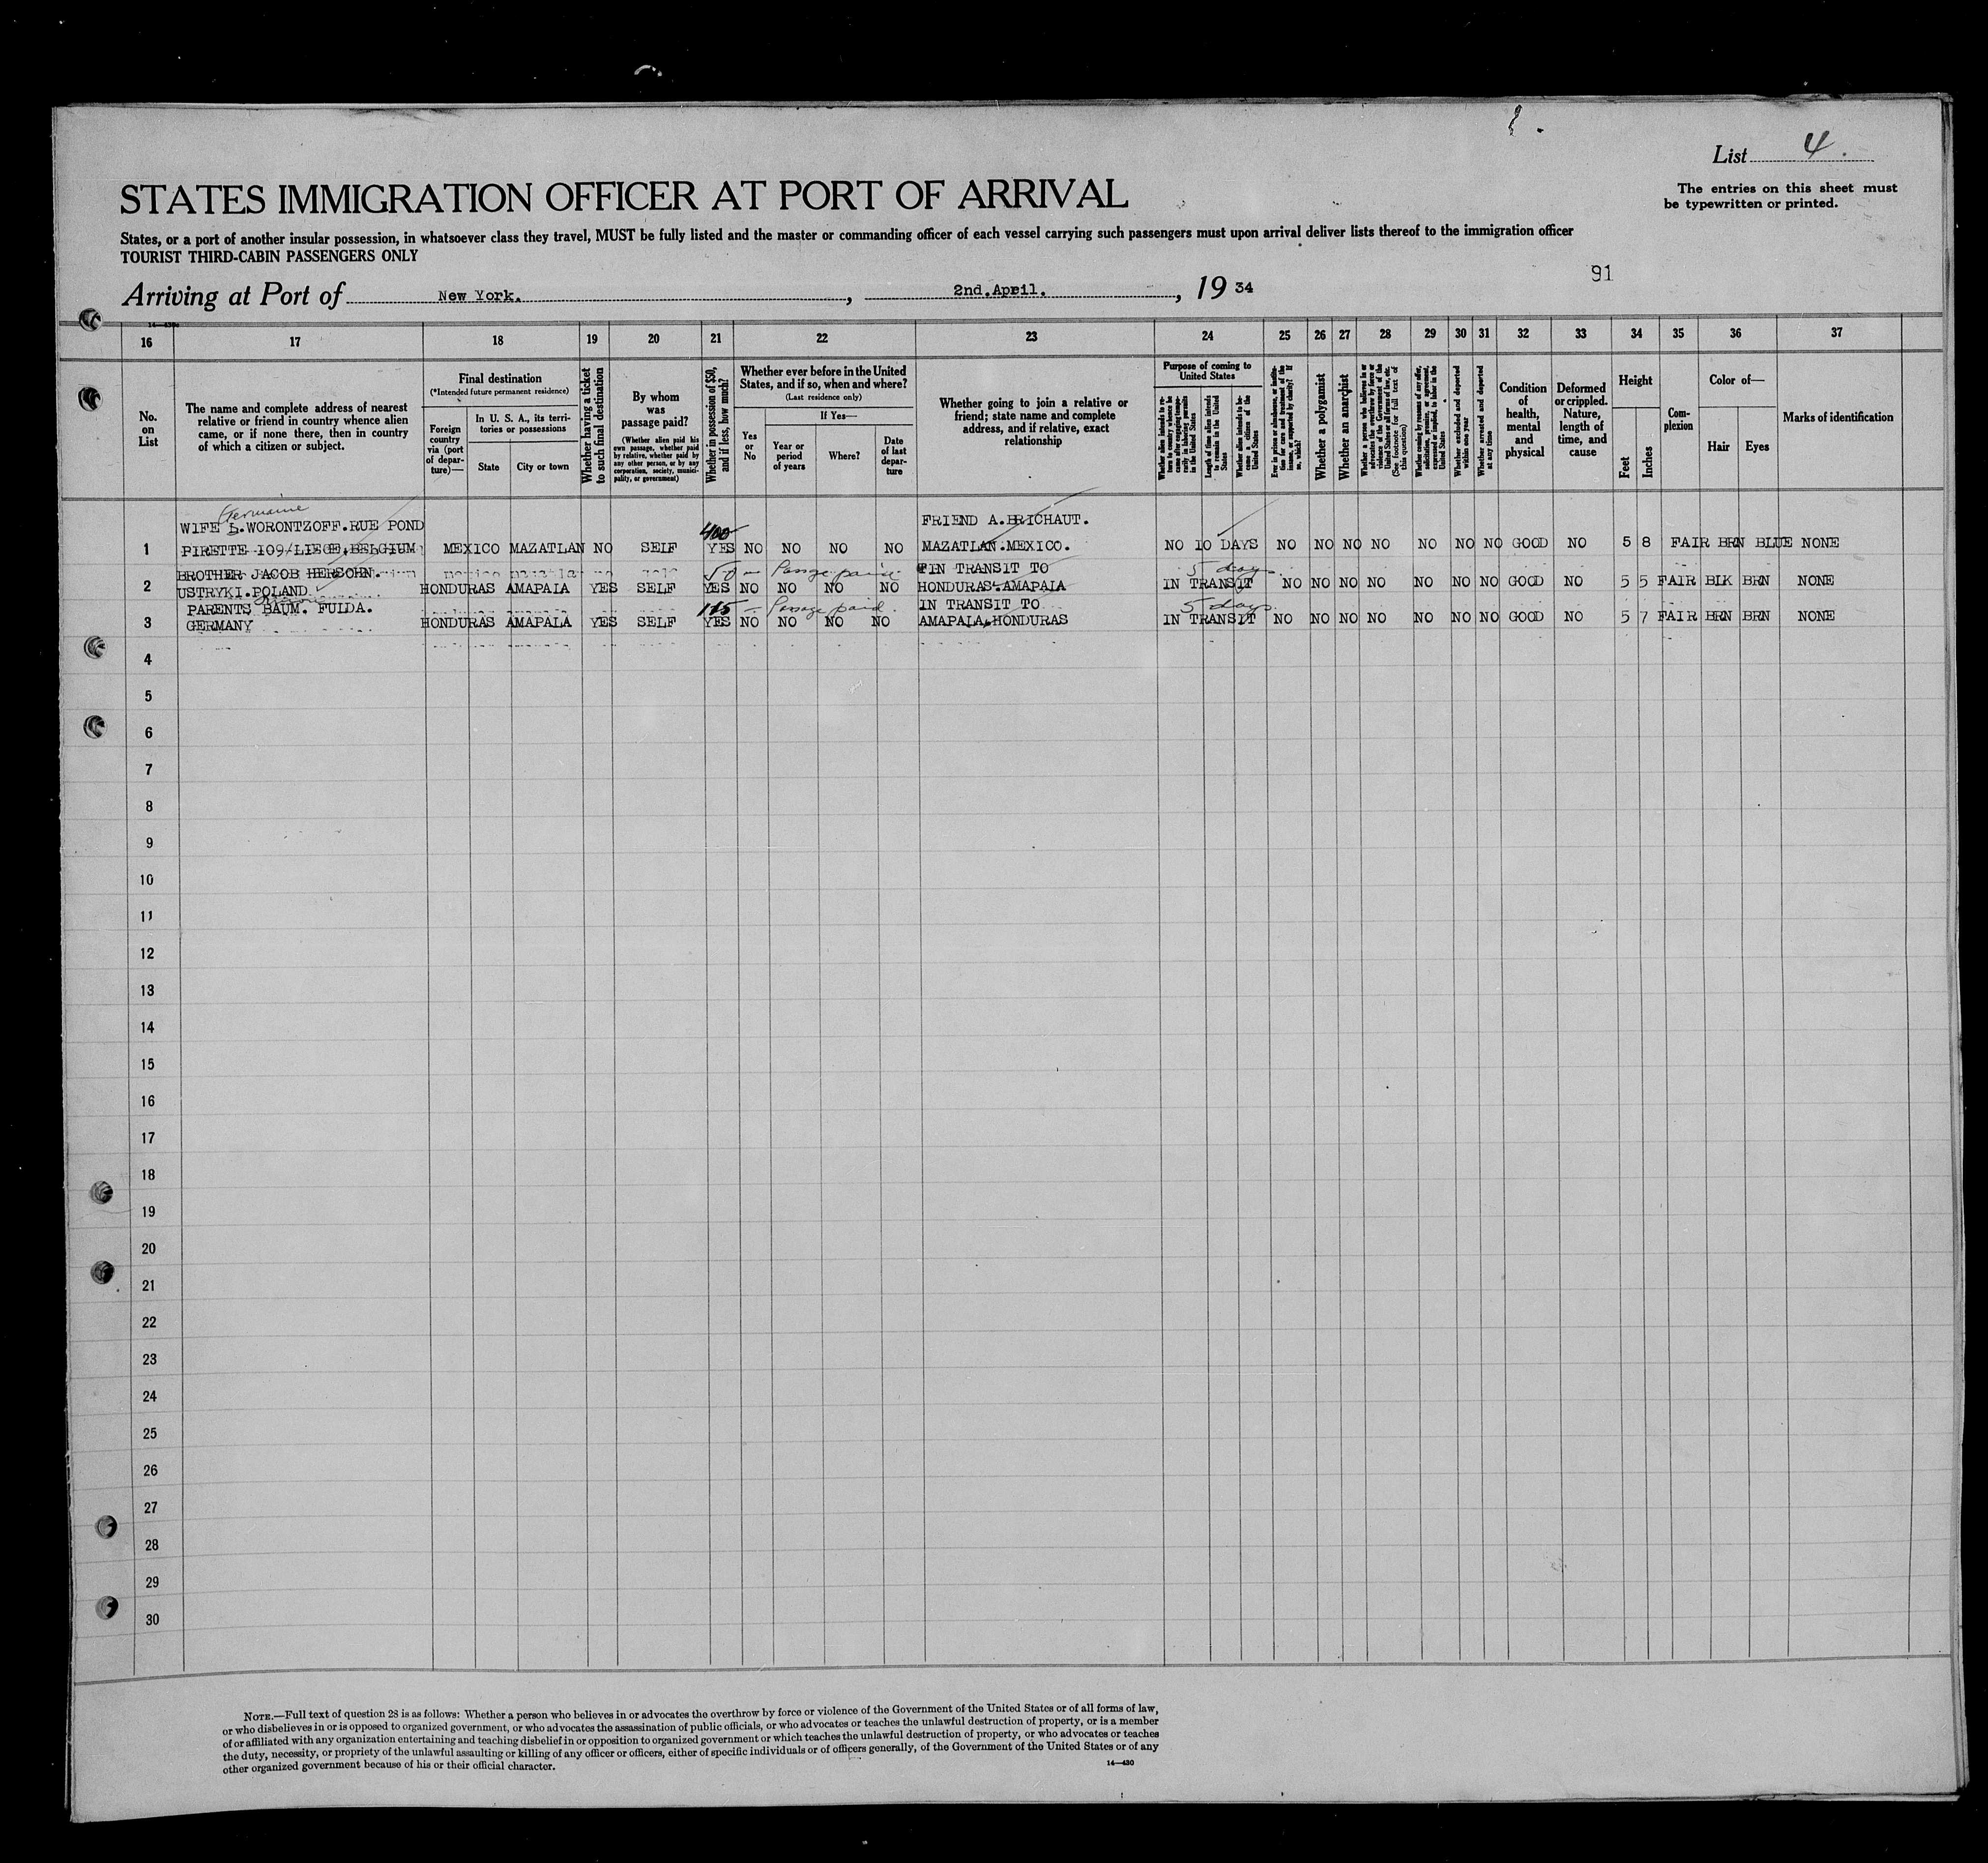 List 4.
STATES IMMIGRATION OFFICER AT PORT OF ARRIVAL
The entries on this sheet must
be typewritten or printed.
States, or a port of another insular possession, in whatsoever class they travel, MUST be fully listed and the master or commanding officer of each vessel carrying such passengers must upon arrival deliver lists thereof to the immigration officer
TOURIST THIRD-CABIN PASSENGERS ONLY
91
Arriving at Port of New York. , 2nd.April. , 19 34
16 17 18 19 20 21 22 23 24 25 26 27 28 29 30 31 32 33 34 35 36 37
No.
on
List
The name and complete address of nearest
relative or friend in country whence alien
came, or if none there, then in country
of which a citizen or subject.
Final destination
(*Intended future permanent residence)
Foreign
country
via (port
of depar-
ture)—
In U. S. A., its terri-
tories or possessions
State
City or town
Whether having a ticket
to such final destination
By whom
was
passage paid?
(Whether alien paid his
own passage, whether paid
by relative, whether paid by
any other person, or by any
corporation, society, munici-
pality, or government)
Whether in possession of $50,
and if less, how much?
Whether ever before in the United
States, and if so, when and where?
(Last residence only)
Yes
or
No
If Yes—
Year or
period
of years
Where?
Date
of last
depar-
ture
Whether going to join a relative or
friend; state name and complete
address, and if relative, exact
relationship
Purpose of coming to
United States
Whether alien intends to re-
turn to country whence he
came after engaging tempo-
rarily in laboring pursuits
in the United States
Length of time alien intends
to remain in the United
States
Whether alien intends to be-
come a citizen of the
United States
Ever in prison or almshouse, or institu-
tion for care and treatment of the
insane, or supported by charity? If
so, which?
Whether a polygamist
Whether an anarchist
Whether a person who believes in or
advocates the overthrow by force or
violence of the Government of the
United States or all forms of law, etc.
(See footnote for full text of
this question)
Whether coming by reasons of any offer,
solicitation, promise, or agreement,
expressed or implied, to labor in the
United States
Whether excluded and deported
within one year
Whether arrested and deported
at any time
Condition
of
health,
mental
and
physical
Deformed
or crippled.
Nature,
length of
time, and
cause
Height
Feet
Inches
Com-
plexion
Color of—
Hair
Eyes
Marks of identification
Germaine
WIFE L.WORONTZOFF.RUE POND 400 FRIEND A.BRICHAUT.
1 PIRETTE 109/LIEGE,BELGIUM MEXICO MAZATLAN NO SELF YES NO NO NO NO MAZATLAN.MEXICO. NO 10 DAYS NO NO NO NO NO NO NO GOOD NO 5 8 FAIR BRN BLUE NONE
BROTHER JACOB HERSOHN. 50 — Passage paid IN TRANSIT TO 5 days
2 USTRYKI.POLAND HONDURAS AMAPALA YES SELF YES NO NO NO NO HONDURAS.AMAPALA IN TRANSIT NO NO NO NO NO NO NO GOOD NO 5 5 FAIR BLK BRN NONE
PARENTS BAUM. FULDA. — Passage paid. IN TRANSIT TO 5 days
3 GERMANY HONDURAS AMAPALA YES SELF YES NO NO NO NO AMAPALA,HONDURAS IN TRANSIT NO NO NO NO NO NO NO GOOD NO 5 7 FAIR BRN BRN NONE
4
5
6
7
8
9
10
11
12
13
14
15
16
17
18
19
20
21
22
23
24
25
26
27
28
29
30
NOTE.—Full text of question 28 is as follows: Whether a person who believes in or advocates the overthrow by force or violence of the Government of the United States or of all forms of law,
or who disbelieves in or is opposed to organized government, or who advocates the assassination of public officials, or who advocates or teaches the unlawful destruction of property, or is a member
of or affiliated with any organization entertaining and teaching disbelief in or opposition to organized government or which teaches the unlawful destruction of property, or who advocates or teaches
the duty, necessity, or propriety of the unlawful assaulting or killing of any officer or officers, either of specific individuals or of officers generally, of the Government of the United States or of any
other organized government because of his or their official character.
14—430